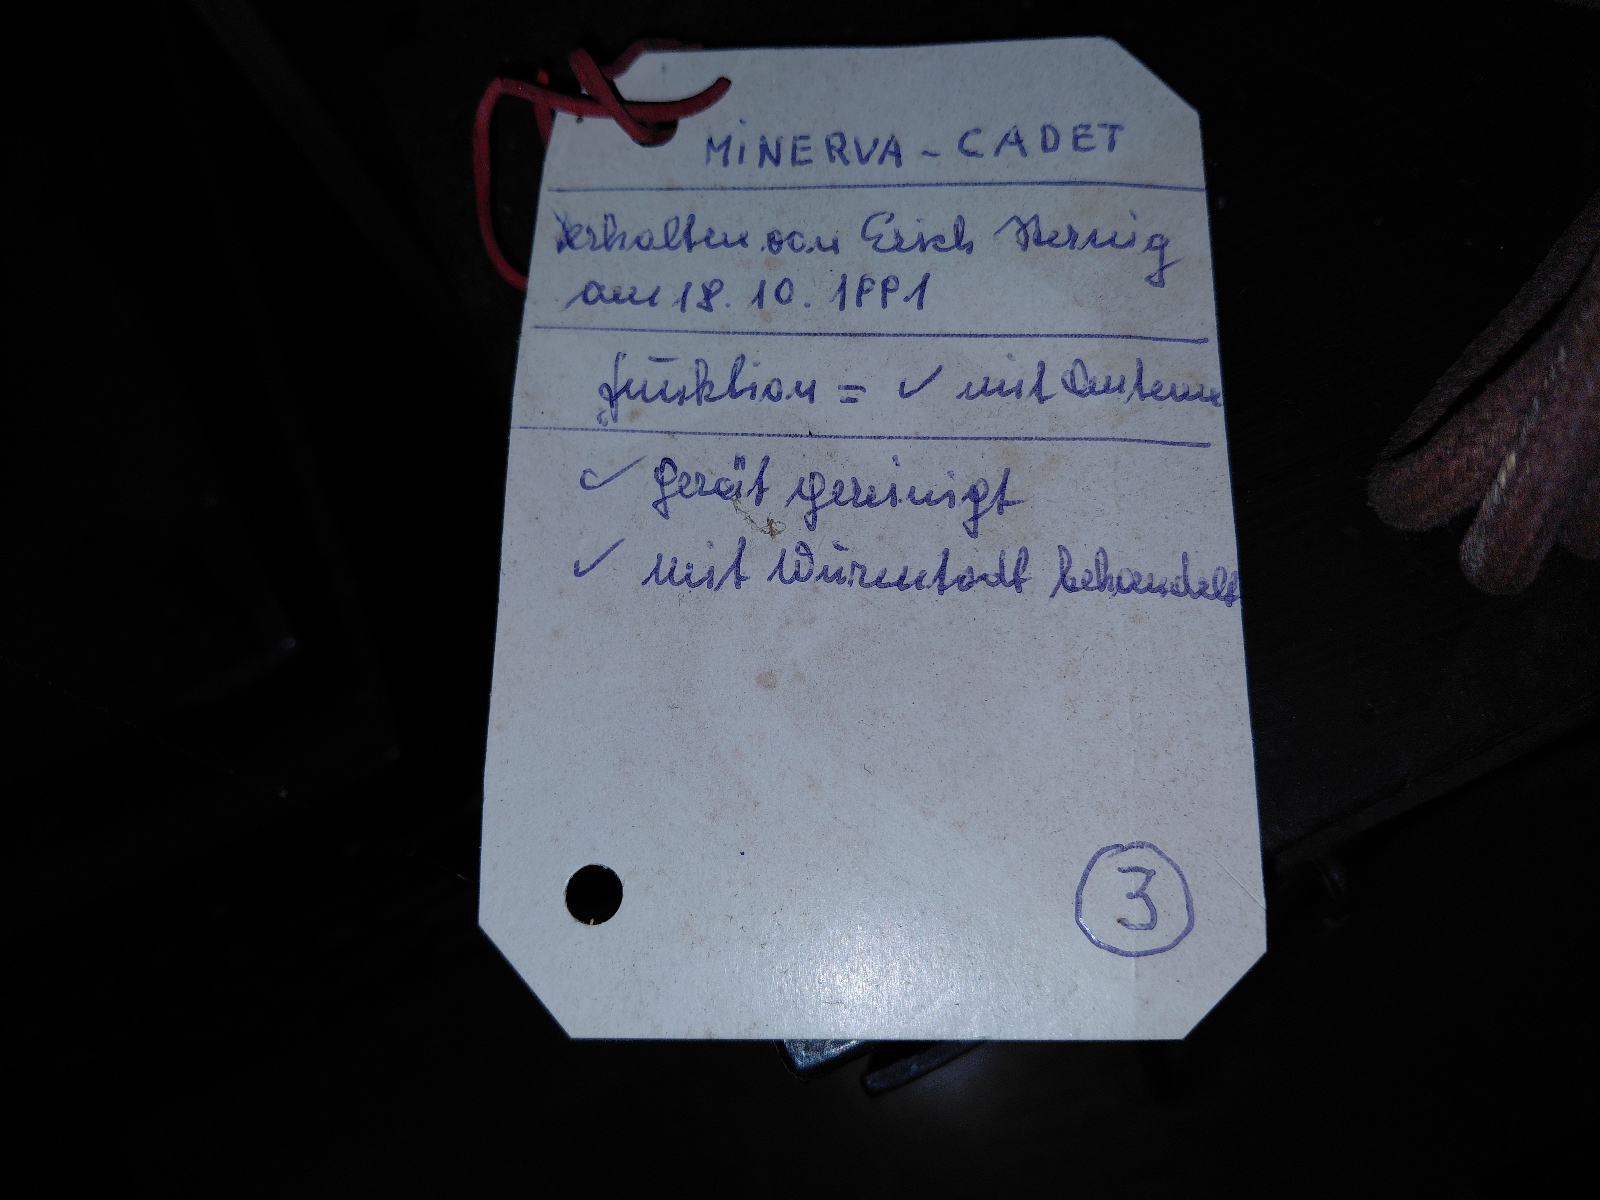 MINERVA - CADET
erhalten von Erich
am 18. 10. 1991
funktion = ✓ mit Antenne
✓ Gerät gereinigt
✓ mit Wurmtodt behandelt
3